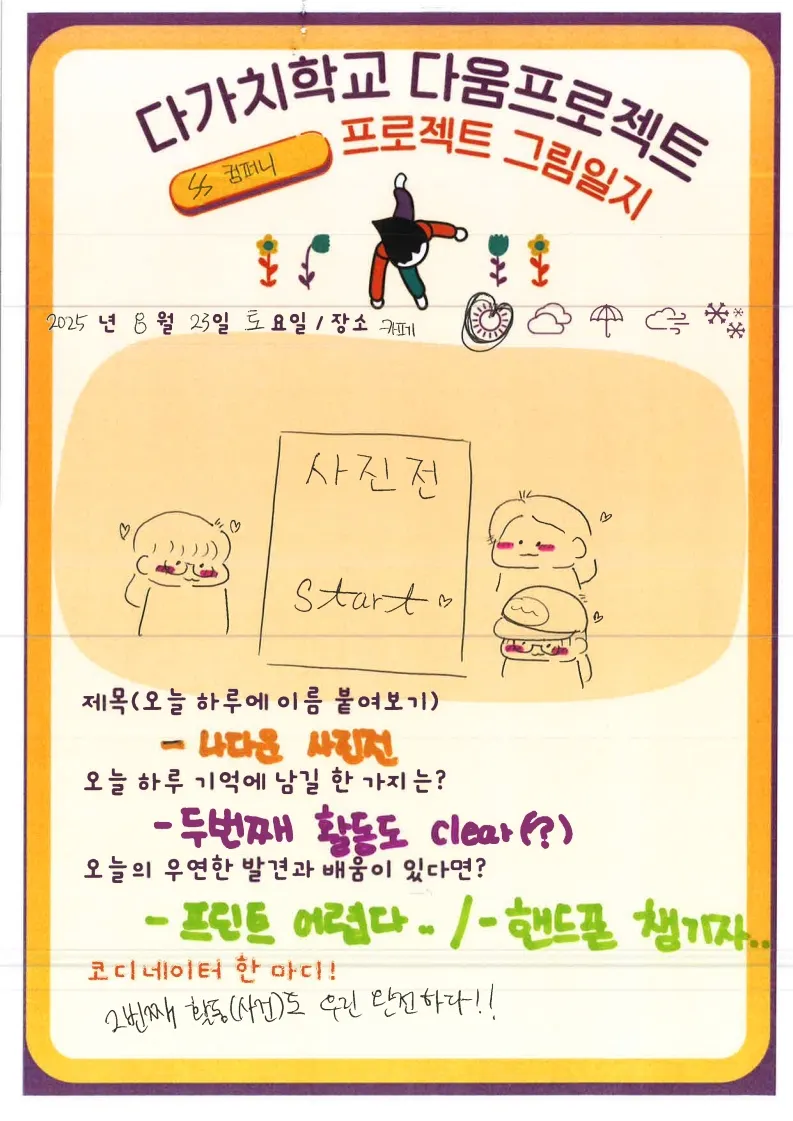 다가치학교 다움프로젝트
프로젝트 그림일지
컴퍼니
2025 년 8 월 23일 토 요일 / 장소 카페
사진전
Start
제목(오늘 하루에 이름 붙여보기)
- 나다운 사진전
오늘 하루 기억에 남길 한 가지는?
- 두번째 활동도 clear(?)
오늘의 우연한 발견과 배움이 있다면?
- 프린트 어렵다.. / - 핸드폰 챙기자..
코디네이터 한 마디!
2번째 활동(사건)도 우린 완전하다!!